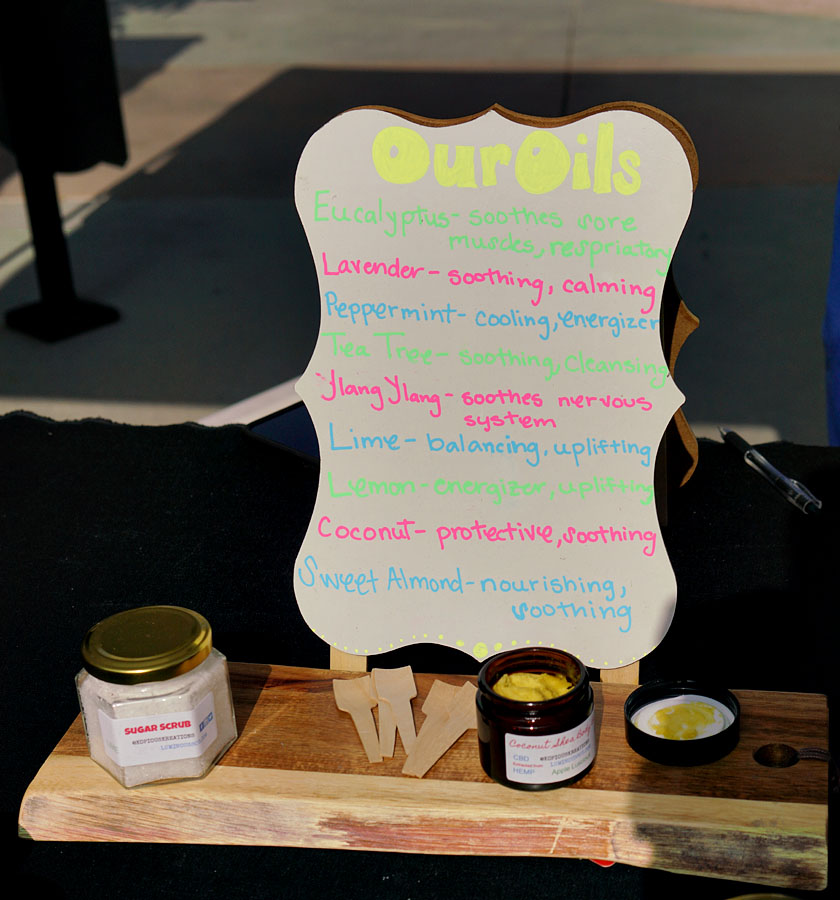 Our Oils
Eucalyptus- soothes sore
muscles, respriatory
Lavender- soothing, calming
Peppermint- cooling, energizer
Tea Tree- soothing, cleansing
Ylang Ylang- soothes nervous
system
Lime- balancing, uplifting
Lemon- energizer, uplifting
Coconut- protective, soothing
Sweet Almond- nourishing,
soothing
SUGAR SCRUB
Coconut Shea Body
CBD
HEMP